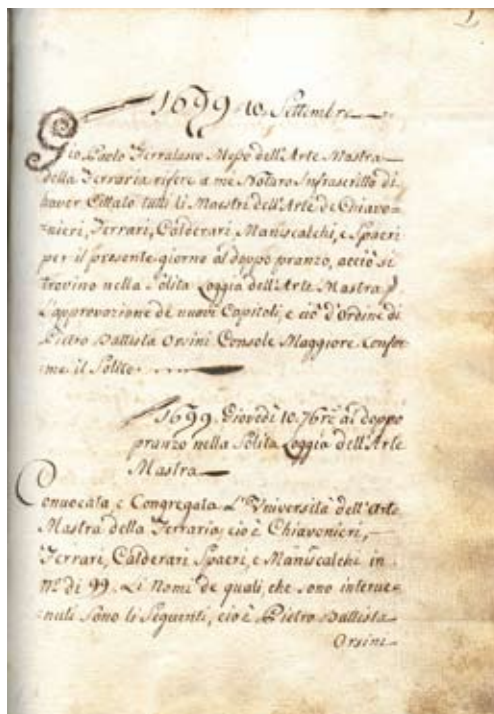 1
1699 10 Settembre
Gio Paolo Ferralasco Messo dell'Arte Mastra
della Ferraria rifere a me Notaro Infrascritto di
haver Cittato tutti li Maestri dell'Arte de Chiavo=
=nieri, Ferrari, Calderari Maniscalchi, e Spaeri
per il presente giorno al doppo pranzo, acciò si
trovino nella Solita Loggia dell'Arte Mastra p
L'approvazione de nuovi Capitoli, e ciò d'Ordine di
Pietro Battista Orsini Console Maggiore Confor
=me il Solito
1699. Giovedì 10. 7bre al doppo
pranzo nella Solita Loggia dell'Arte
Mastra
Convocata, e Congregata L'Università dell'Arte
Mastra della Ferraria, cioè Chiavonieri,
Ferrari, Calderari Spaeri, e Maniscalchi in
n.º di 99. Li Nomi de quali, che sono interve=
=nuti Sono li Seguenti, cioè Pietro Battista
Orsini